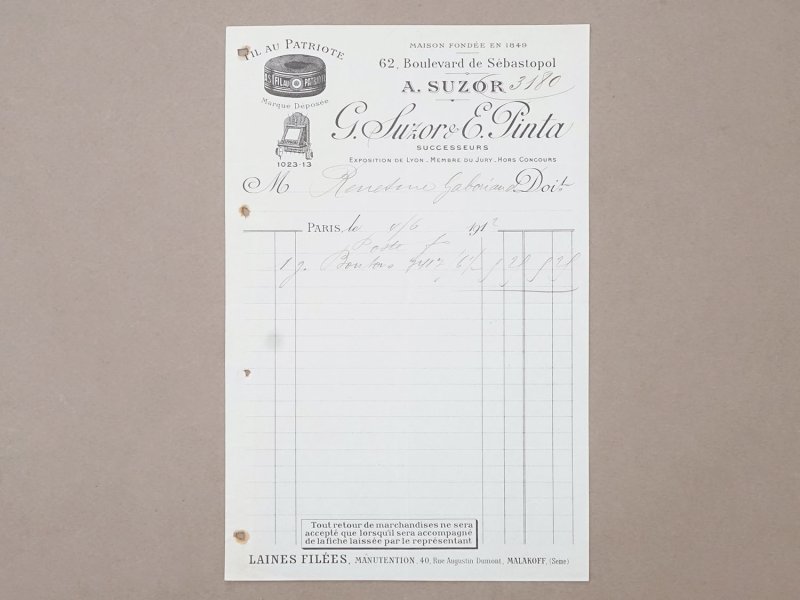 FIL AU PATRIOTE
FIL AU PATRIOTE
Marque Déposée
1023-13
MAISON FONDÉE EN 1849
62, Boulevard de Sébastopol
A. SUZOR 3180
G. Suzor & E. Pinta
SUCCESSEURS
EXPOSITION DE LYON - MEMBRE DU JURY - HORS CONCOURS
M Doit
PARIS, le 1912
1 g. Boutons
Tout retour de marchandises ne sera
accepté que lorsqu'il sera accompagné
de la fiche laissée par le représentant
LAINES FILÉES, MANUTENTION, 40, Rue Augustin Dumont, MALAKOFF, (Seine)